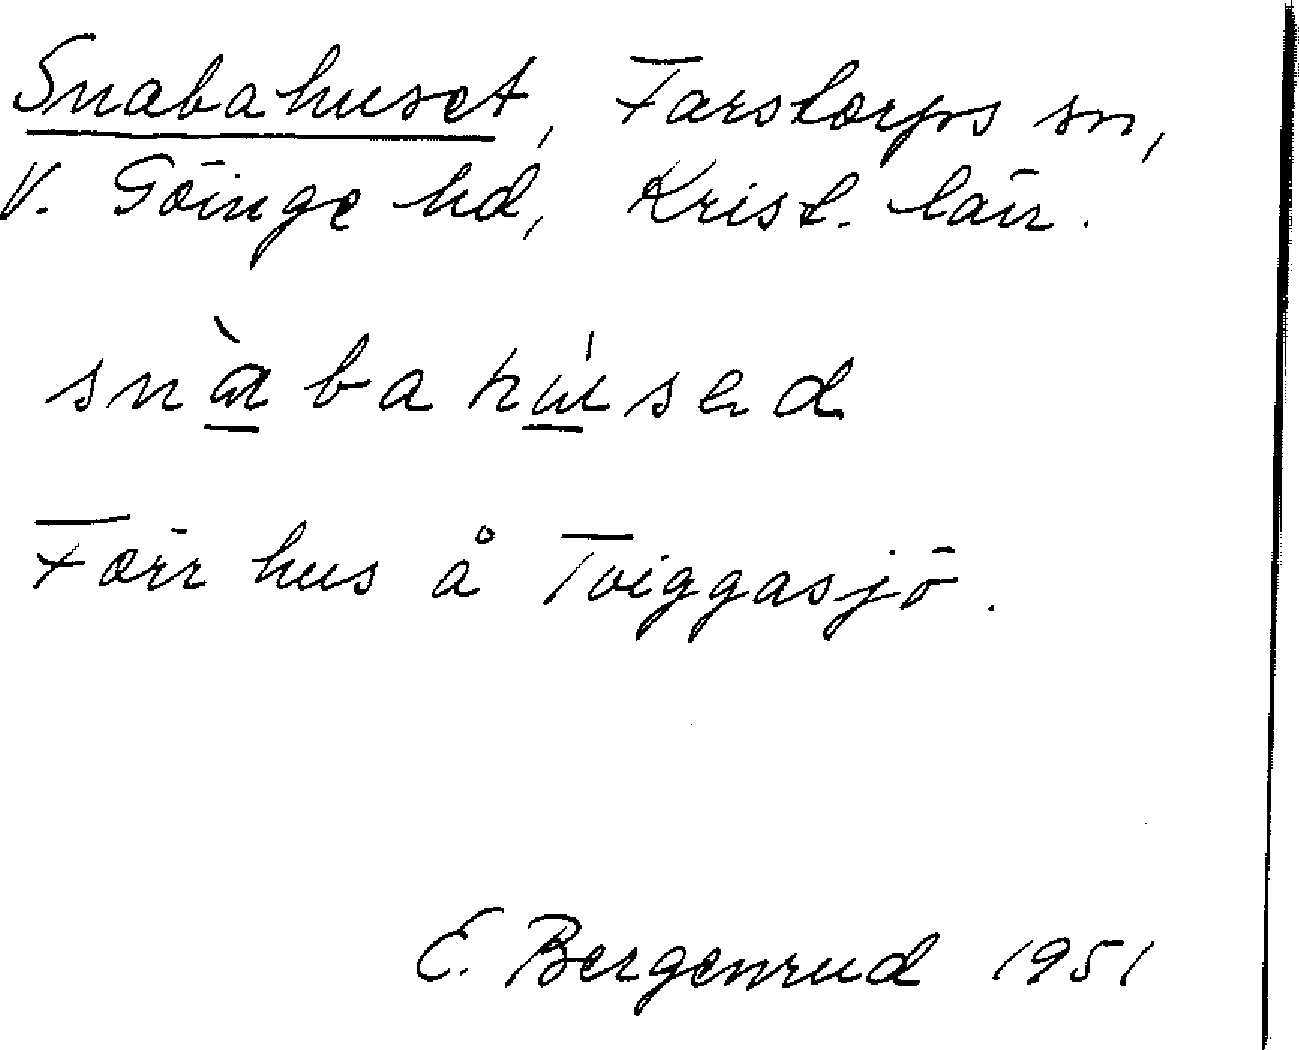 Snabahuset, Farstorps sn,
V. Göinge hd, Krist. län.
snàbahúsed
Förr hus å Tviggasjö.
E. Bergenrud 1951